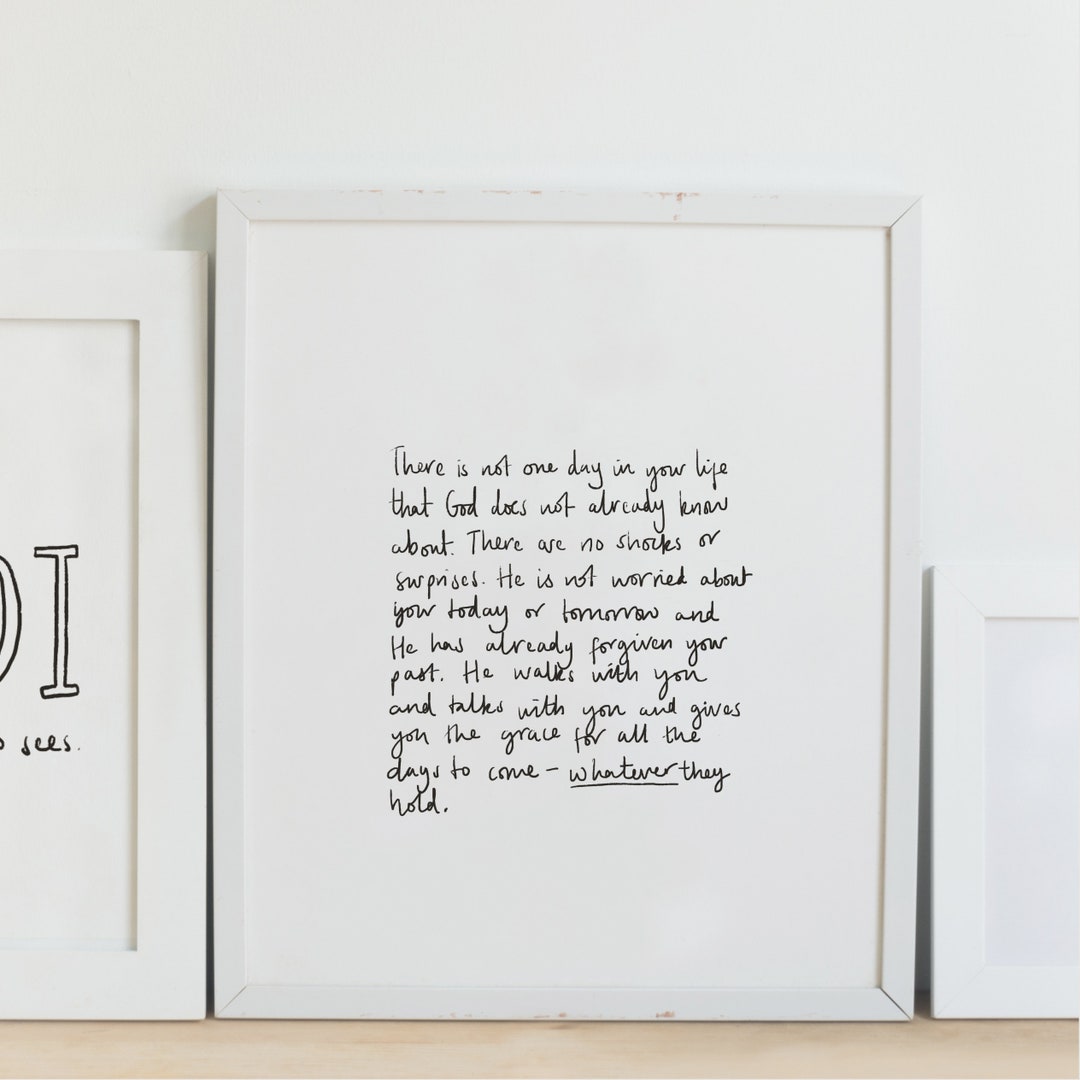 OI
sees.
There is not one day in your life
that God does not already know
about. There are no shocks or
surprises. He is not worried about
your today or tomorrow and
He has already forgiven your
past. He walks with you
and talks with you and gives
you the grace for all the
days to come - whatever they
hold.